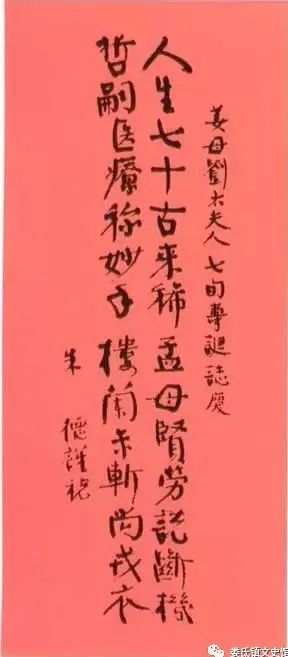 姜母劉太夫人七旬誕誌慶
人生七十古來稀 孟母賢勞說斷機
哲嗣医療称妙手 樓蘭未斬尚戎衣
朱德謹祝
娄氏镇文史馆